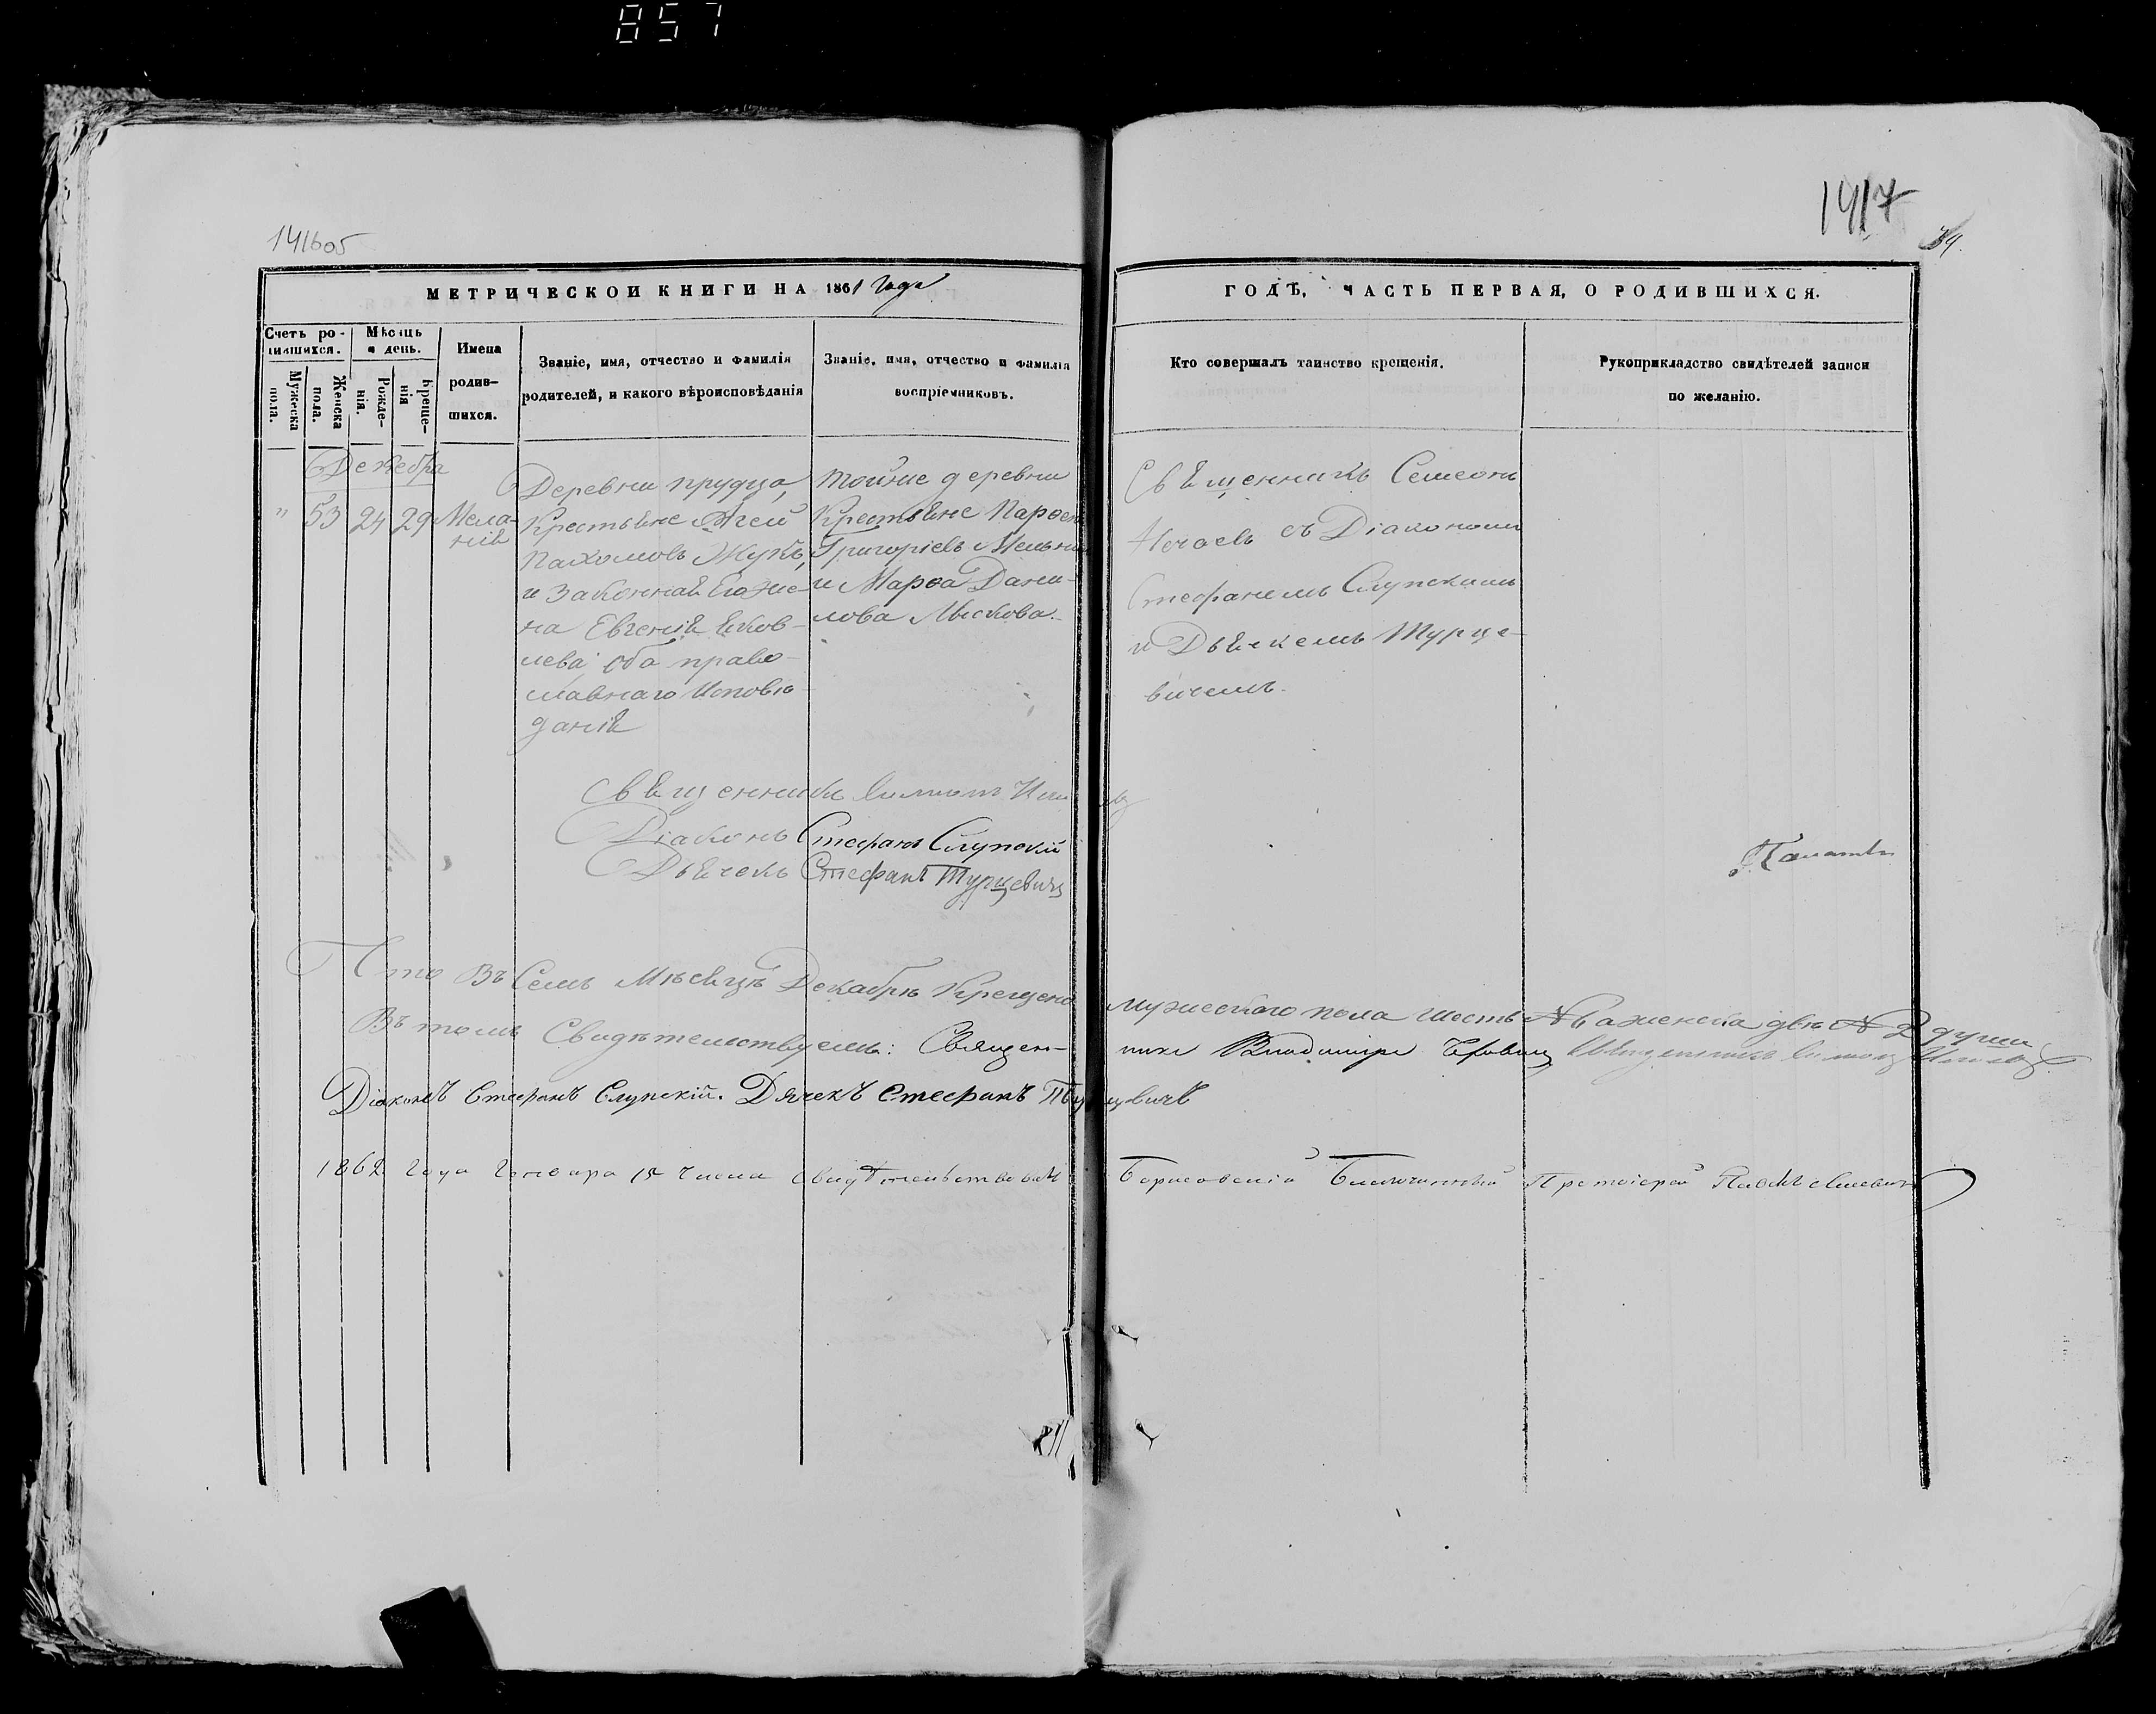 857
1417
141605
МЕТРИЧЕСКОЙ КНИГИ НА 1861 года
ГОДѢ, ЧАСТЬ ПЕРВАЯ, О РОДИВШИХСЯ.
Счетъ ро-
дившихся.
Мужеска
пола.
Женска
пола.
Мѣсяцъ
и день.
Рожде-
нія.
Креще-
нія
Имена
родив-
шихся.
Званіе, имя, отчество и фамилія
родителей, и какого вѣроисповѣданія
Званіе, имя, отчество и фамилія
воспріемниковъ.
Кто совершалъ таинство крещенія.
Рукоприкладство свидѣтелей записи
по желанію.
Декабря
" 53 24 29
Мела-
нія
Деревни прудца,
Крестьяне Агей
Пахомовъ Жукъ,
и Законная Его же-
на Евгенія Яков-
лева оба право-
славнаго Исповѣ-
данія
тойже деревни
Крестьяне Парѳен
Григоріевъ
и Марѳа Дани-
лова Мыскова.
Священникъ Семеонъ
съ Діакономъ
Стефаномъ Слупскимъ
и Дьячкемъ Турце-
вичемъ.
Священникъ
Діаконъ Стефанъ Слупскій
Дьячекъ Стефанъ Турцевичъ
Что Въ Семъ Мѣсяцѣ Декабрѣ Крещено мужескаго пола шесть № 6 аженска двѣ № 2 души
Въ томъ Свидѣтельствуемъ: Священ-никъ Владимиръ Священникъ
Діаконъ Стефанъ Слупскій. Дячекъ Стефанъ Турцевичъ
1862 года Генваря 15 числа Свидѣтельствовалъ Борисовскій Благочинный Протоіерей